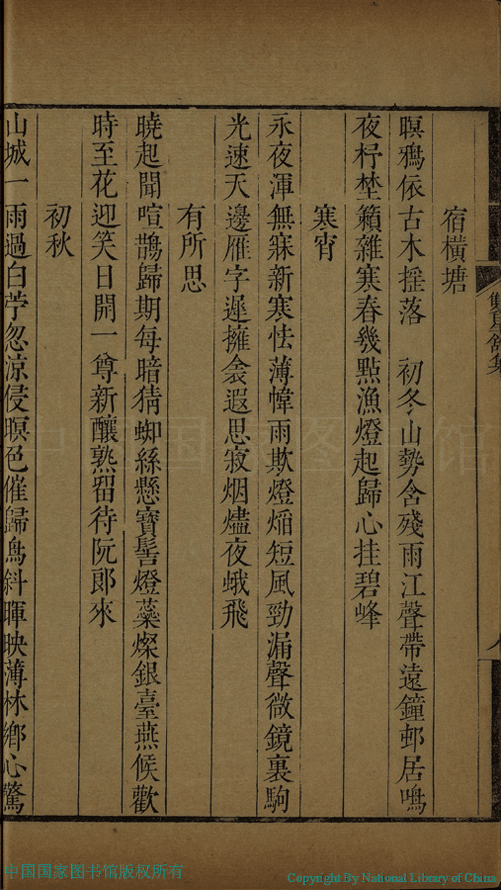 宿橫塘
暝鴉依古木搖落 初冬山勢含殘雨江聲帶遠鐘邨居鳴
夜杼埜籟雜寒舂幾點漁燈起歸心挂碧峰
寒宵
永夜渾無寐新寒怯薄幃雨欺燈熖短風勁漏聲微鏡裏駒
光速天邊雁字遲擁衾遐思寂烟燼夜蛾飛
有所思
曉起聞喧鵲歸期每暗猜蜘絲懸寶髻燈蘂燦銀臺燕候歡
時至花迎笑日開一尊新釀熟畱待阮郞來
初秋
山城一雨過白苧忽涼侵暝色催歸鳥斜暉映薄林鄉心驚
中国国家图书馆
中国国家图书馆版权所有
Copyright By National Library of China